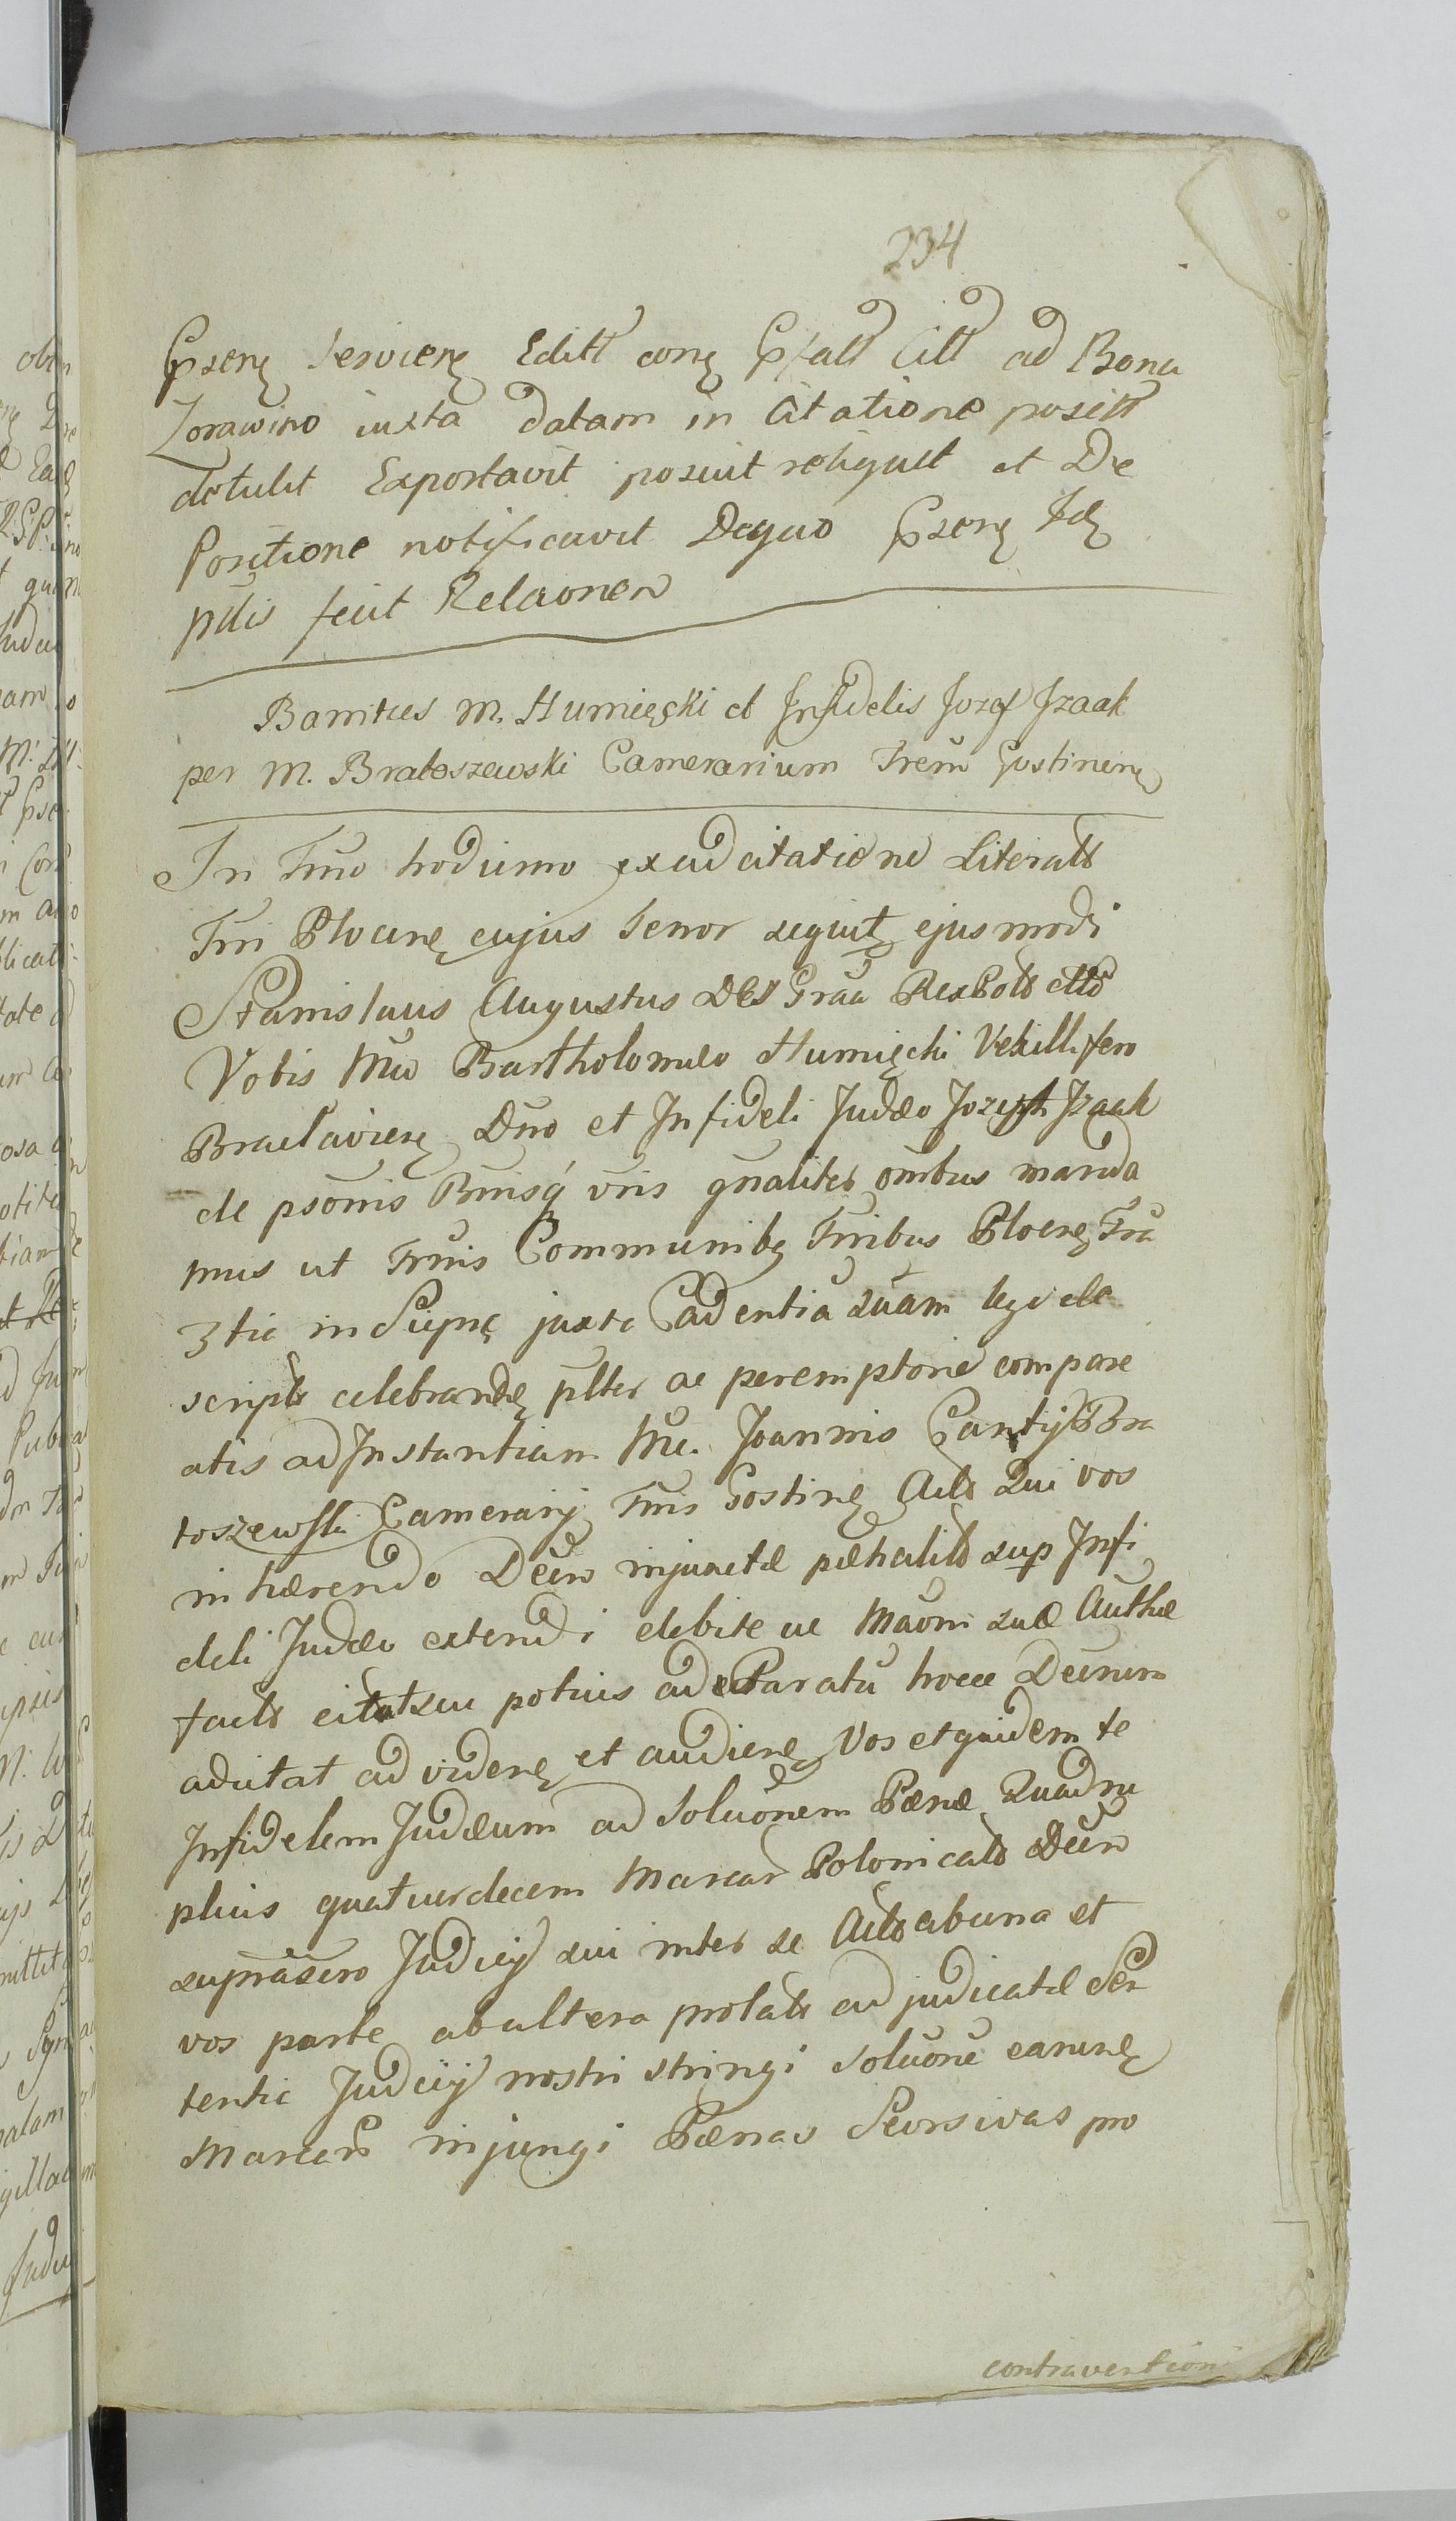 234
Pṡenꝫ Servienꝫ Editt conꝫ Pfatt Citt ad Bona
Zorawino iuxta datam in Citatione positt
detulit Exportavit posuit reliquit et De
Positione notificavit Dequo Pṡenꝫ Idꝫ
pñlis fecit Relaonem
Bannitues M. Humięcki et Infidelis Jozef Jzaak
per M. Bratoszewski Camerarium Trem̃ Gostinenꝫ
In Tmo hodierno ex ad citatione Literatt
Tm̃ Plocenꝫ cujus tenor sequit̃ ejusmodi
Stanislaus Augustus DEI Graã Rex Poltt ettt
Vobis Mũo Bartholomæo Humięcki Vexillifero
Braclavienꝫ Dño et Infideli Judæo Jozeph Jzaak
de psonis Bonisq́ vr̃is gñaliter om̃ibus manda
mus ut Tm̃is Communibꝫ Tm̃ibus Plocenꝫ Tra
3tia in Siepnꝫ juxta Cadentia suam lege de
scriptt celebrandꝫ plt̃er ac peremptorie compare
atis ad Instantiam Mu. Joannis Cantij Bra
toszewski Camerarij Tm̃is Gostinꝫ Actt Qui vos
inhærendo Decr̃o injunctæ pæhalitt sup Infi
deli Judæo extendi debite ac Maom̃ suæ Authæ
factt citatt seu potius ad Paratũ hocce Decretum
adcitat ad videnꝫ et audienꝫ Vos et quidem te
Infidelem Judæum ad Soluõnem Pænæ Quadru
plius quatuordecem Marcar Polonicatt Decr̃o
supr̃ascro Judicij sui inter se Actt ab una et
vos parte ab altera prolatt ad judicatæ Sen
tentia Judicij nostri stringi soluõne earunꝫ
Marcar injungi Pænas Seorsivas pro
contravention